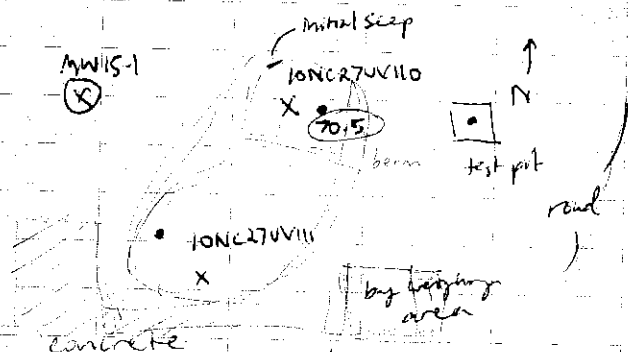 initial seep
MW15-1
X
10NC27UV110
X
70,5
N
test pit
berm
road
10NC27UV111
X
bag weighing
area
concrete